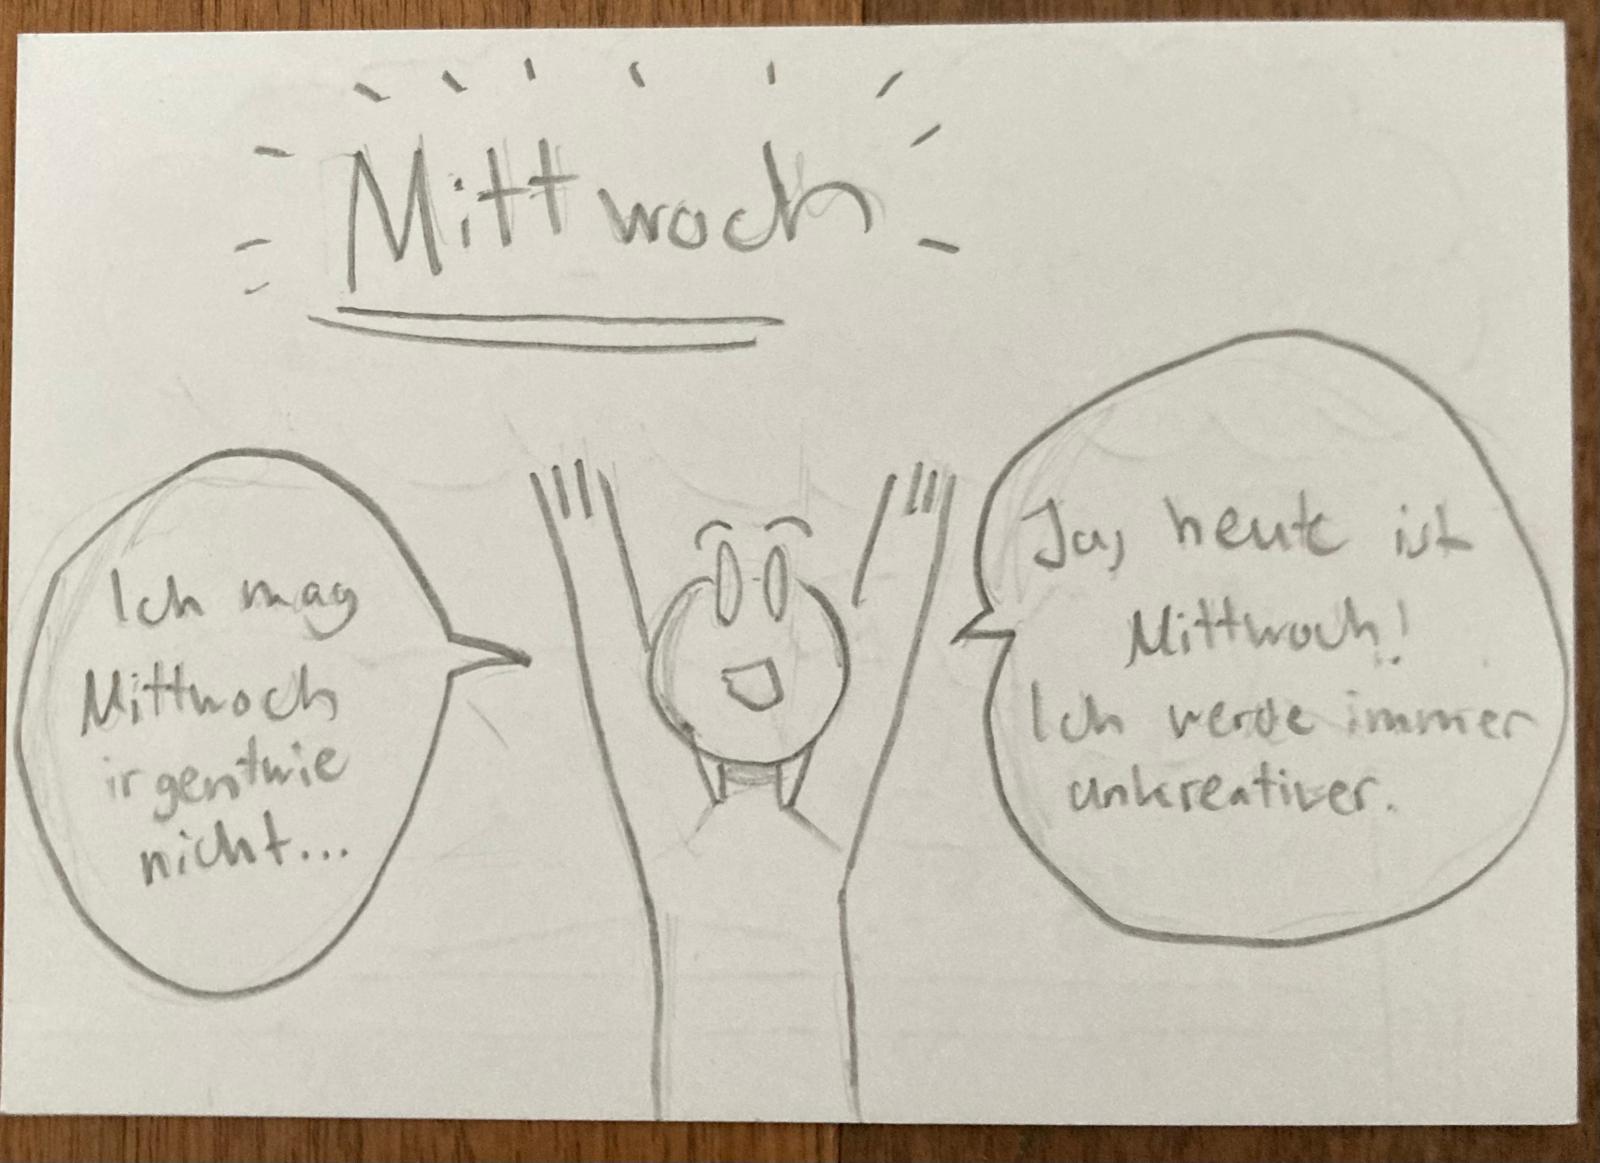 Mittwoch
Ich mag
Mittwoch
irgentwie
nicht...
Ja, heute ist
Mittwoch!
Ich werde immer
unkreativer.